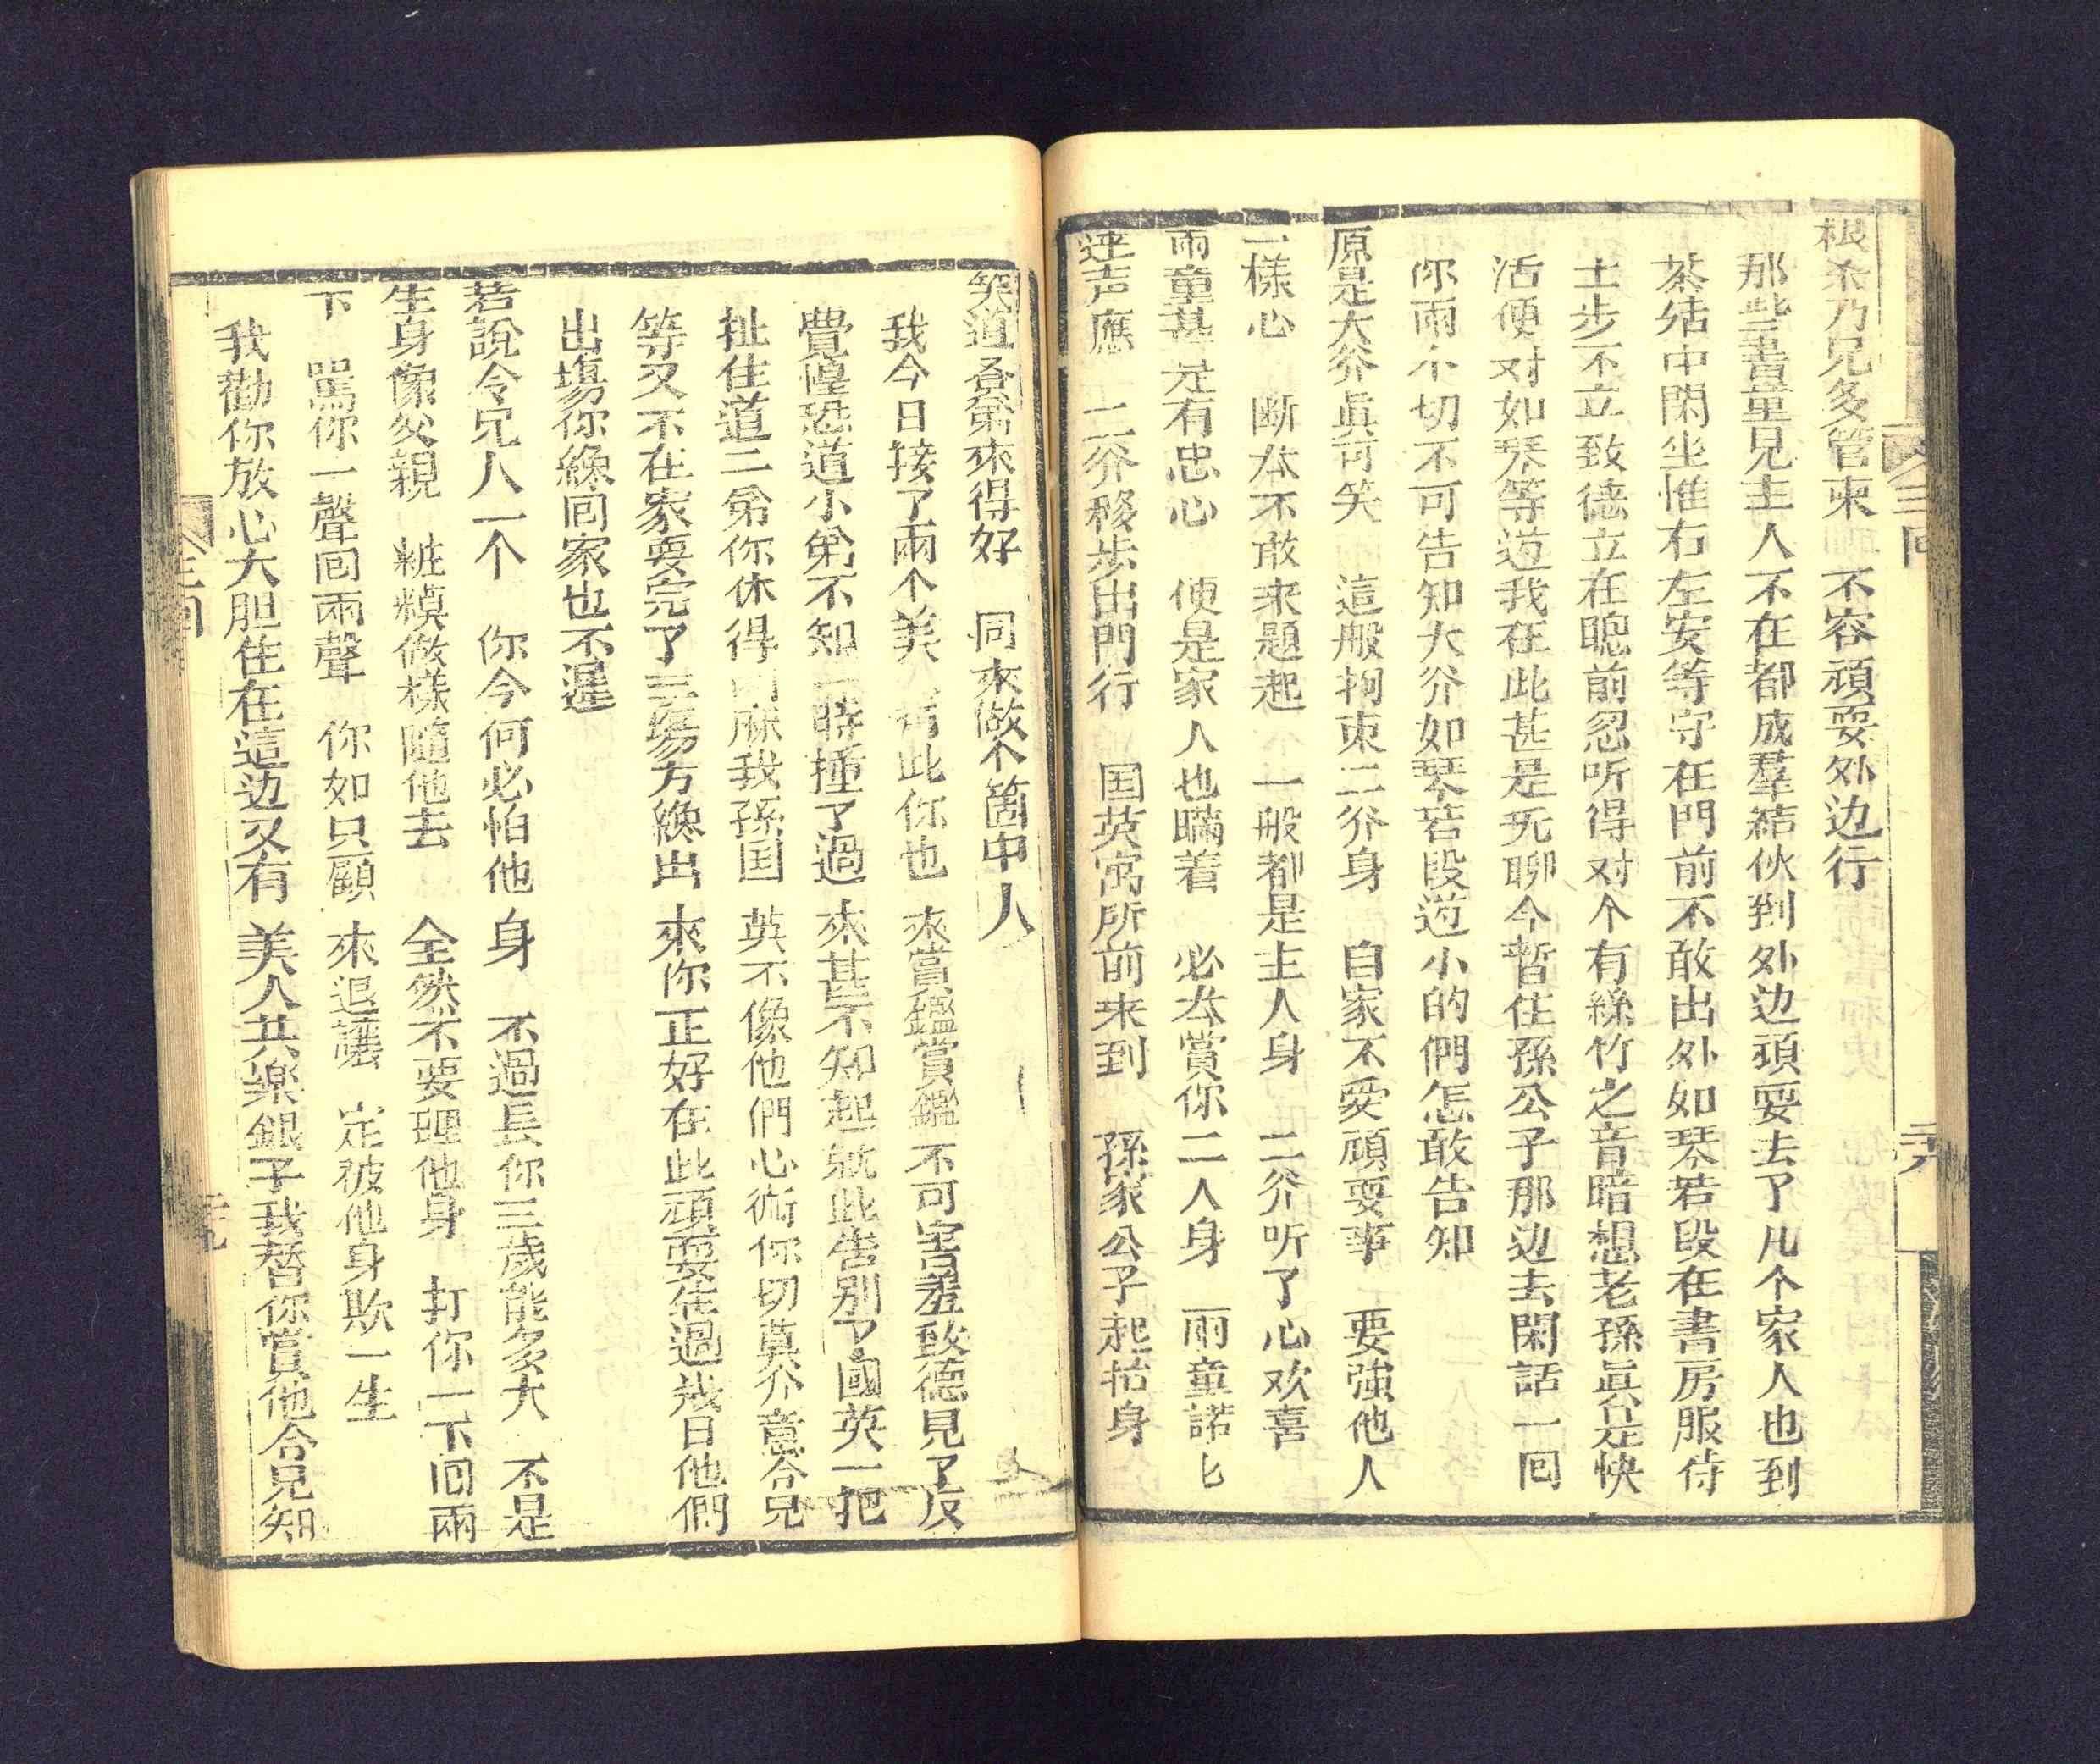 三回
二十八
根余乃兄多管束 不容頑耍外边行
那些書童見主人不在都成羣結伙到外边頑耍去了几个家人也到
茶坊中閑坐惟右左安等守在門前不敢出外如琴若段在書房服侍
士步不立致德立在聰前忽听得对个有絲竹之音暗想老孫眞是快
活便对如琴等道我在此甚是无聊今暂住孫公子那边去閑話一囬
你両个切不可告知大爷如琴若段道小的們怎敢告知
原是大爷眞可笑 這般拘束二爷身 自家不愛頑耍事 要強他人
一樣心 断然不敢来題起 一般都是主人身 二爷听了心欢喜
両童甚是有忠心 便是家人也瞞着 必然賞你二人身 両童諾匕
連声應 二爷移步出門行 国英寓所前来到 孫家公子起抬身
笑道叁弟來得好 同來做个箇中人
我今日接了兩个美人在此你也來賞鑑賞鑑不可害羞致德見了反
覺惶恐道小弟不知一時撞了過來甚不知起就此告别了國英一把
扯住道二弟你休得肉麻我孫国英不像他們心術你切莫介意令兄
等又不在家耍完了三塲方纔出來你正好在此頑耍住過㡬日他們
出塲你纔囬家也不遲
若說令兄人一个 你今何必怕他身 不過長你三歲能多大 不是
生身像父親 粧模做樣隨他去 全然不要理他身 打你一下囬兩
下 罵你一聲囬兩聲 你如只顧來退讓 定被他身欺一生
我勸你放心大胆住在這边又有美人共樂銀子我替你賞他令兄知
三回